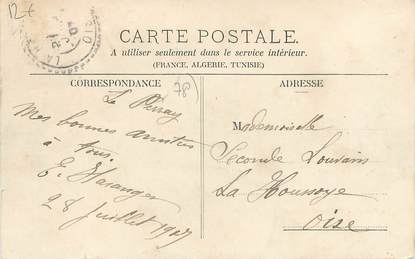 12+
CARTE POSTALE.
A utiliser seulement dans le service intérieur.
(FRANCE, ALGERIE, TUNISIE)
CORRESPONDANCE
ADRESSE
78
Le Perray
Mes bonnes amitiés
à tous.
E.
28 Juillet 1907
Mademoiselle
Louvain
La Houssoye
Oise